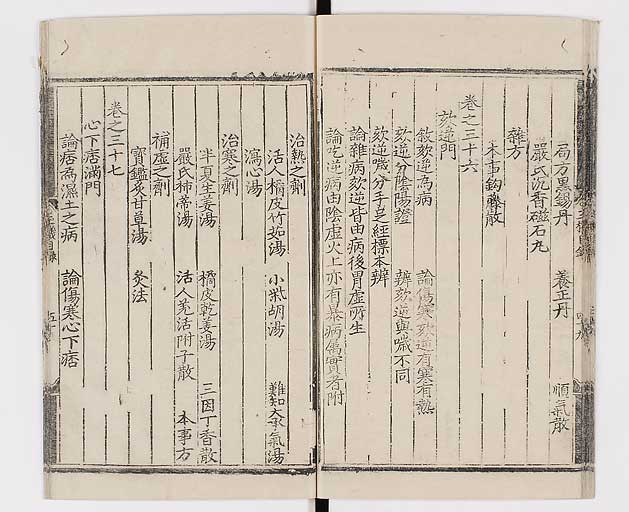 局方黑錫丹　養正丹　順氣散
嚴氏沉香磁石丸
雜方
本事鈎藤散
卷之三十六
欬逆門
敘欬逆為病　論傷寒欬逆有寒有熱
欬逆分陰陽證　辨欬逆與噦不同
欬逆噦分手足經標本辨
論雜病欬逆皆由病後胃虛所生
論吃逆病由陰虛火上亦有暴病屬實者附
治熱之劑
活人橘皮竹茹湯　小柴胡湯　難知承氣湯
瀉心湯
治寒之劑
半夏生姜湯　橘皮乾姜湯　三因丁香散
嚴氏柿蒂湯　活人羌活附子散　本事方
補虛之劑
寶鑑炙甘草湯　灸法
卷之三十七
心下痞滿門
論痞為濕土之病　論傷寒心下痞